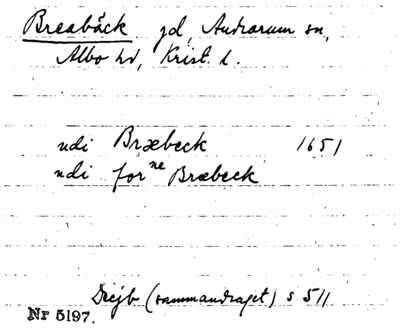 Breabäck jd, Andrarum sn,
Albo hd, Krist. l.
udi Bræbeck 1651
udi for^ne Bræbeck
Drejb (sammandraget) s 511
Nr 5197.